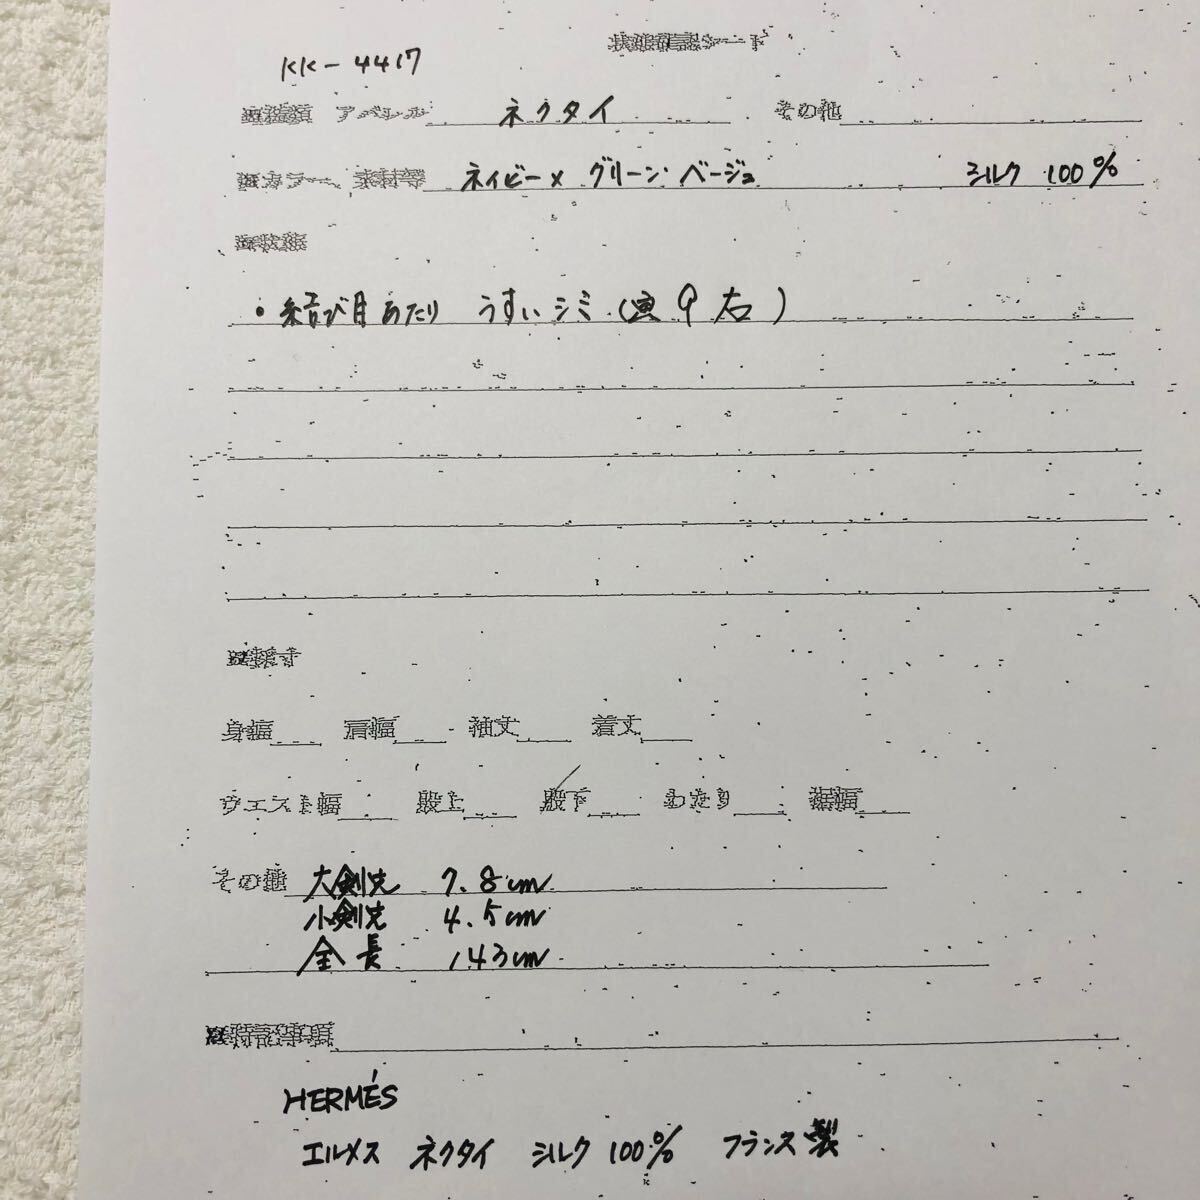 状態確認シート
KK-4417
アパレル ネクタイ その他
カラー、素材等 ネイビー×グリーン・ベージュ シルク 100%
・結び目あたり うすいシミ(裏 9右)
採寸
身幅 肩幅 袖丈 着丈
ウエスト幅 股上 股下 わたり 裾幅
その他 大剣先 7.8cm
小剣先 4.5cm
全長 143cm
特記事項
HERMÉS
エルメス ネクタイ シルク 100% フランス製